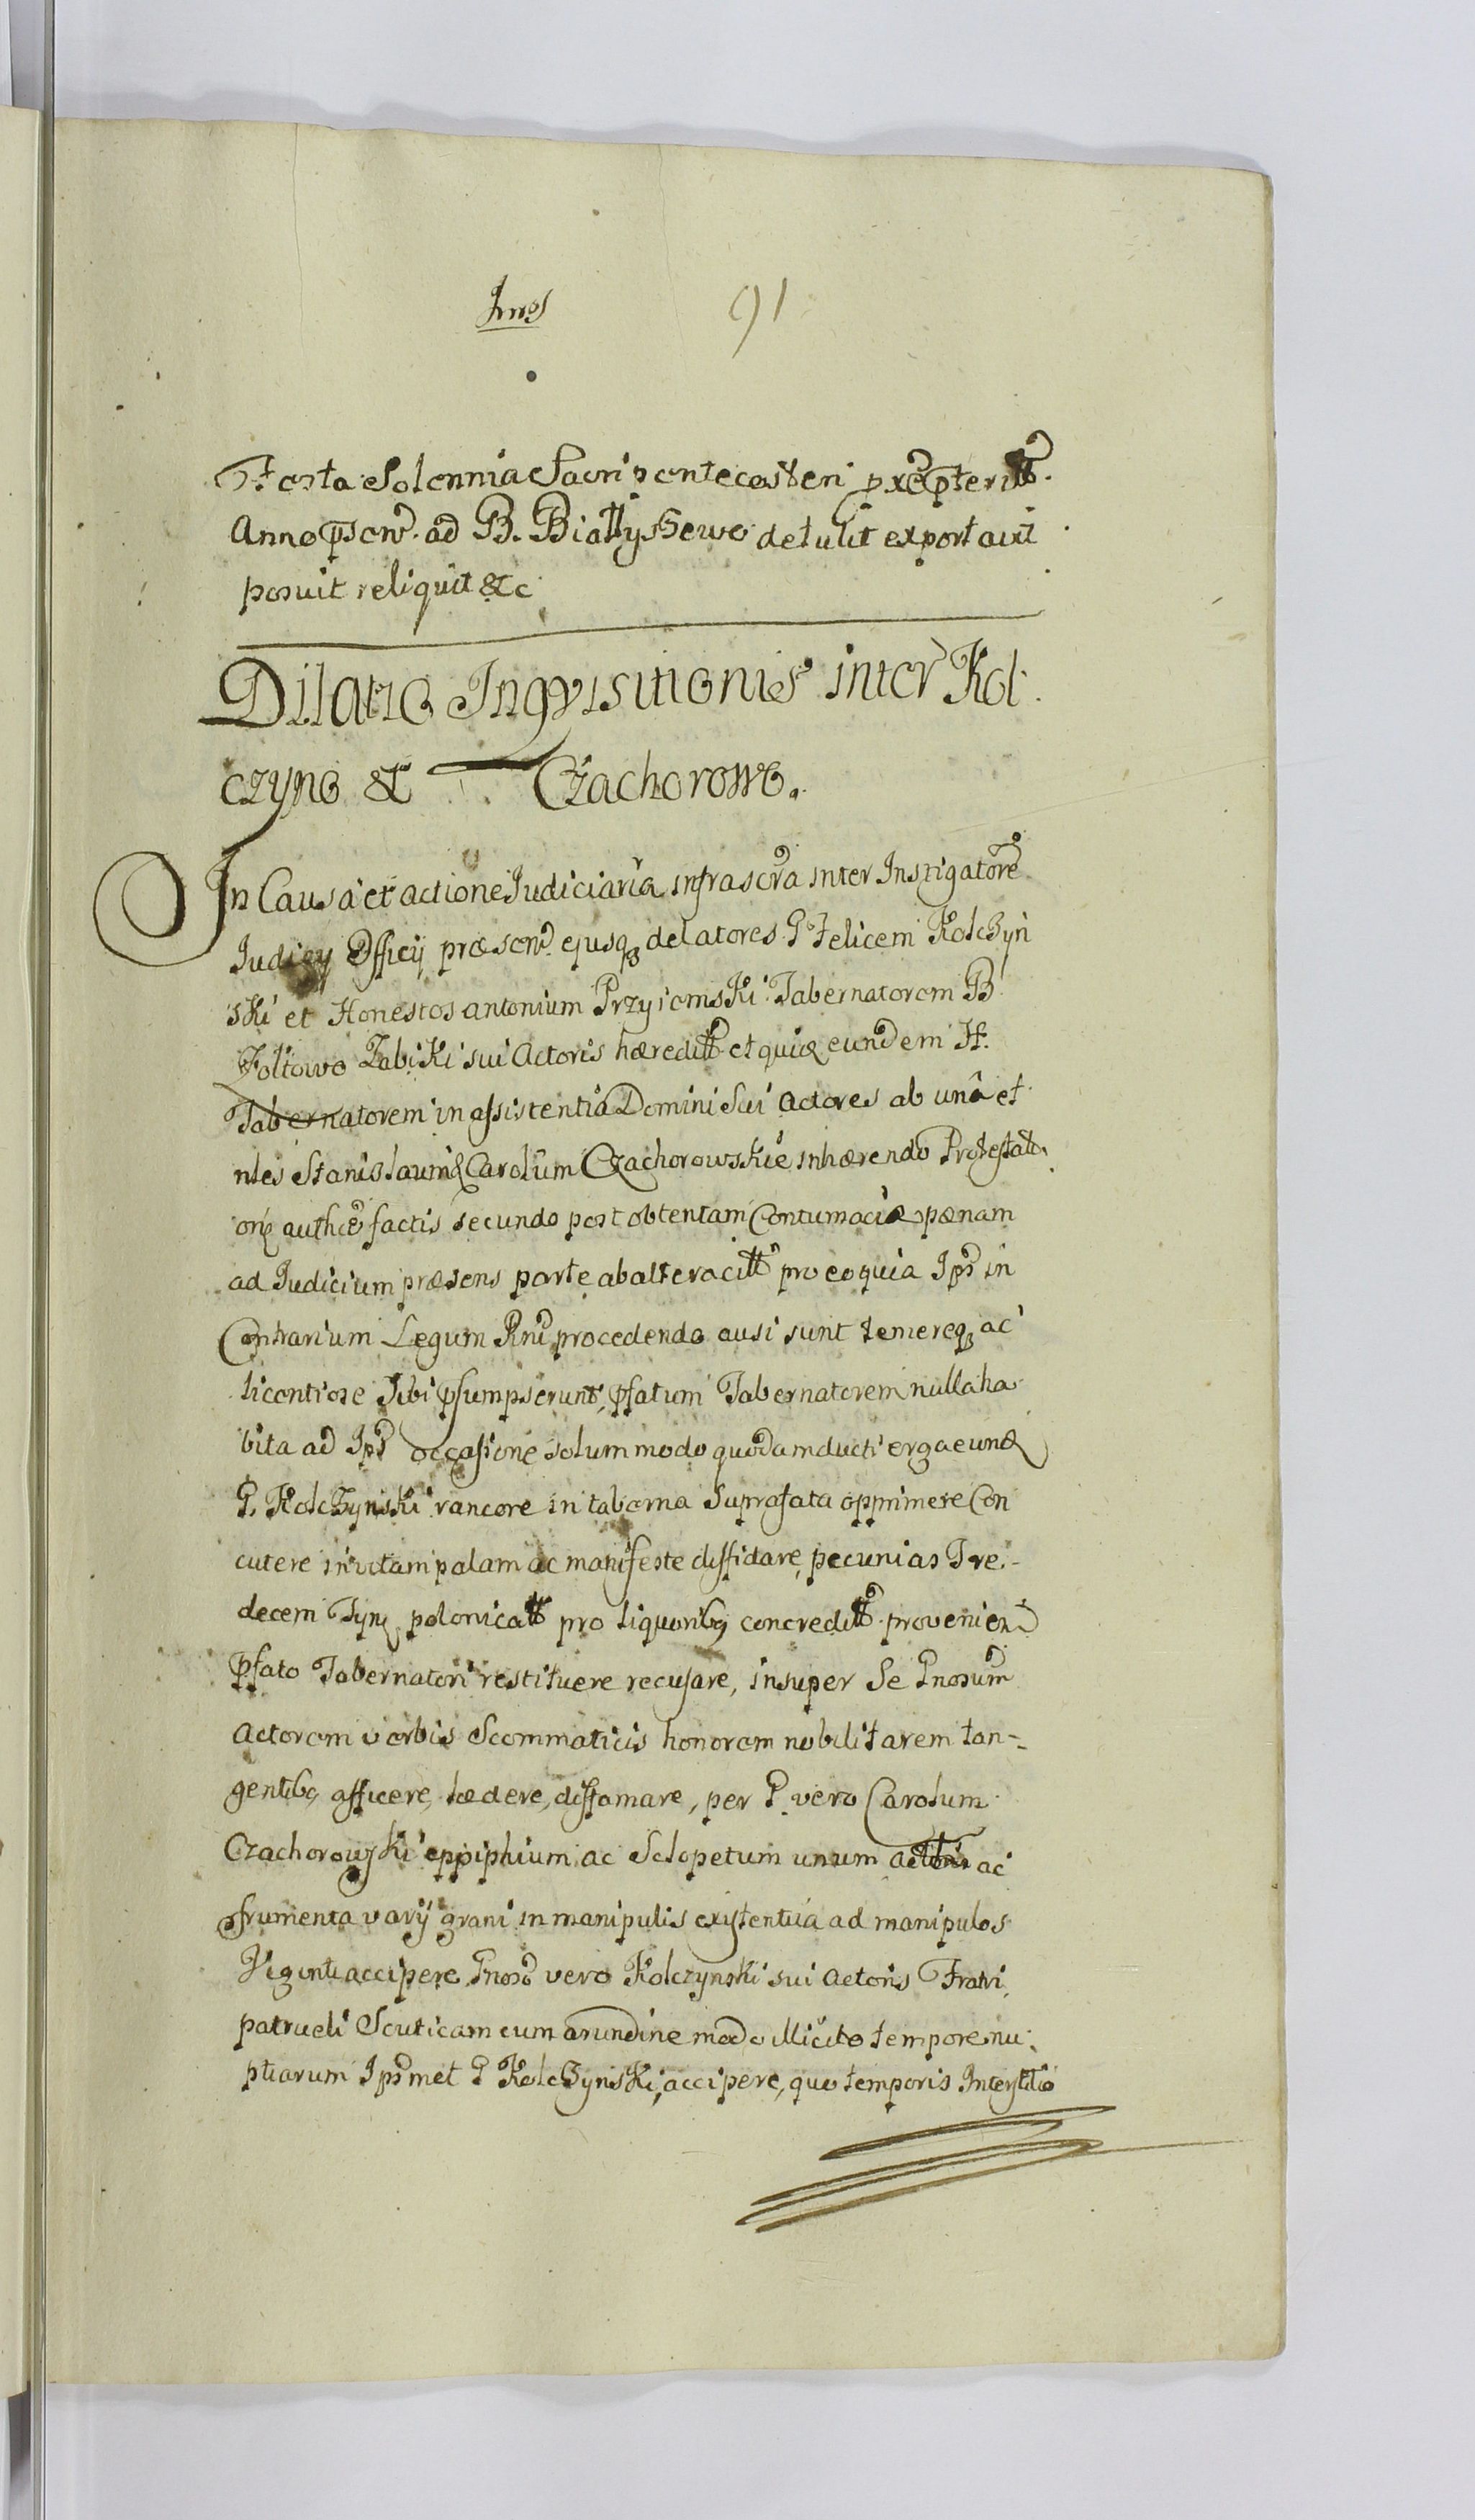 91
Festa Solennia Sacri pentecosten
Anno ad B. Biattyszewo detulit exportavit
posuit reliquit &c
Dilatio Inqvisitionis inter Kol
czyno & Czachorowo.
In Causa et actione Judiciaria infrascra inter Instigatore
Judicy Officy præsend ejusq delatores G Felicem Kolczyn
ski et Honestos antonium Przyiemski Tabernatorem B
Foltowo Zabiki sui Actoris hæreditt et quiq eundem H.
Tabernatorem in assistentia Domini Sui actores ab unâ et
nles Stanislaum & Carolum Czachorowskie inhærendo Protestati
onq authce factis secundo post obtentam Contumaciæ pænam
ad Judicium præsens parte ab altera citt pro eo quia Ips in
Contrarium Legum Rni procedendo ausi sunt temereq ac
licentiose Sibi psumpserunt, pfatum Tabernatorem nulla ha
bita ad Ips occasione solummodo quodam ducti erga eund
G. Kolczynski rancore in taberna Suprafata opprimere Con
cutere invitam palam ac manifeste diffidare, pecunias Tre-
decem Tynf polonicatt pro liquoribq concreditt provenien
pfato Tabernatori restituere recusare, insuper Se Gnosum
actorem verbis Scommaticis honorem nobilitarem tan-
gentibq afficere, lædere, diffamare, per G. vero Carolum
Czachorowski eppiphium ac Sclopetum unum actoris ac
frumenta varij grani in manipulis existentia ad manipulos
Viginti accipere, Gnoso vero Kolczynski sui actoris Fratri
patrueli Scuticam cum arundine modo illicito tempore nu:
ptiarum Ipsmet G Kolczynski, accipere, quo temporis Interstitio